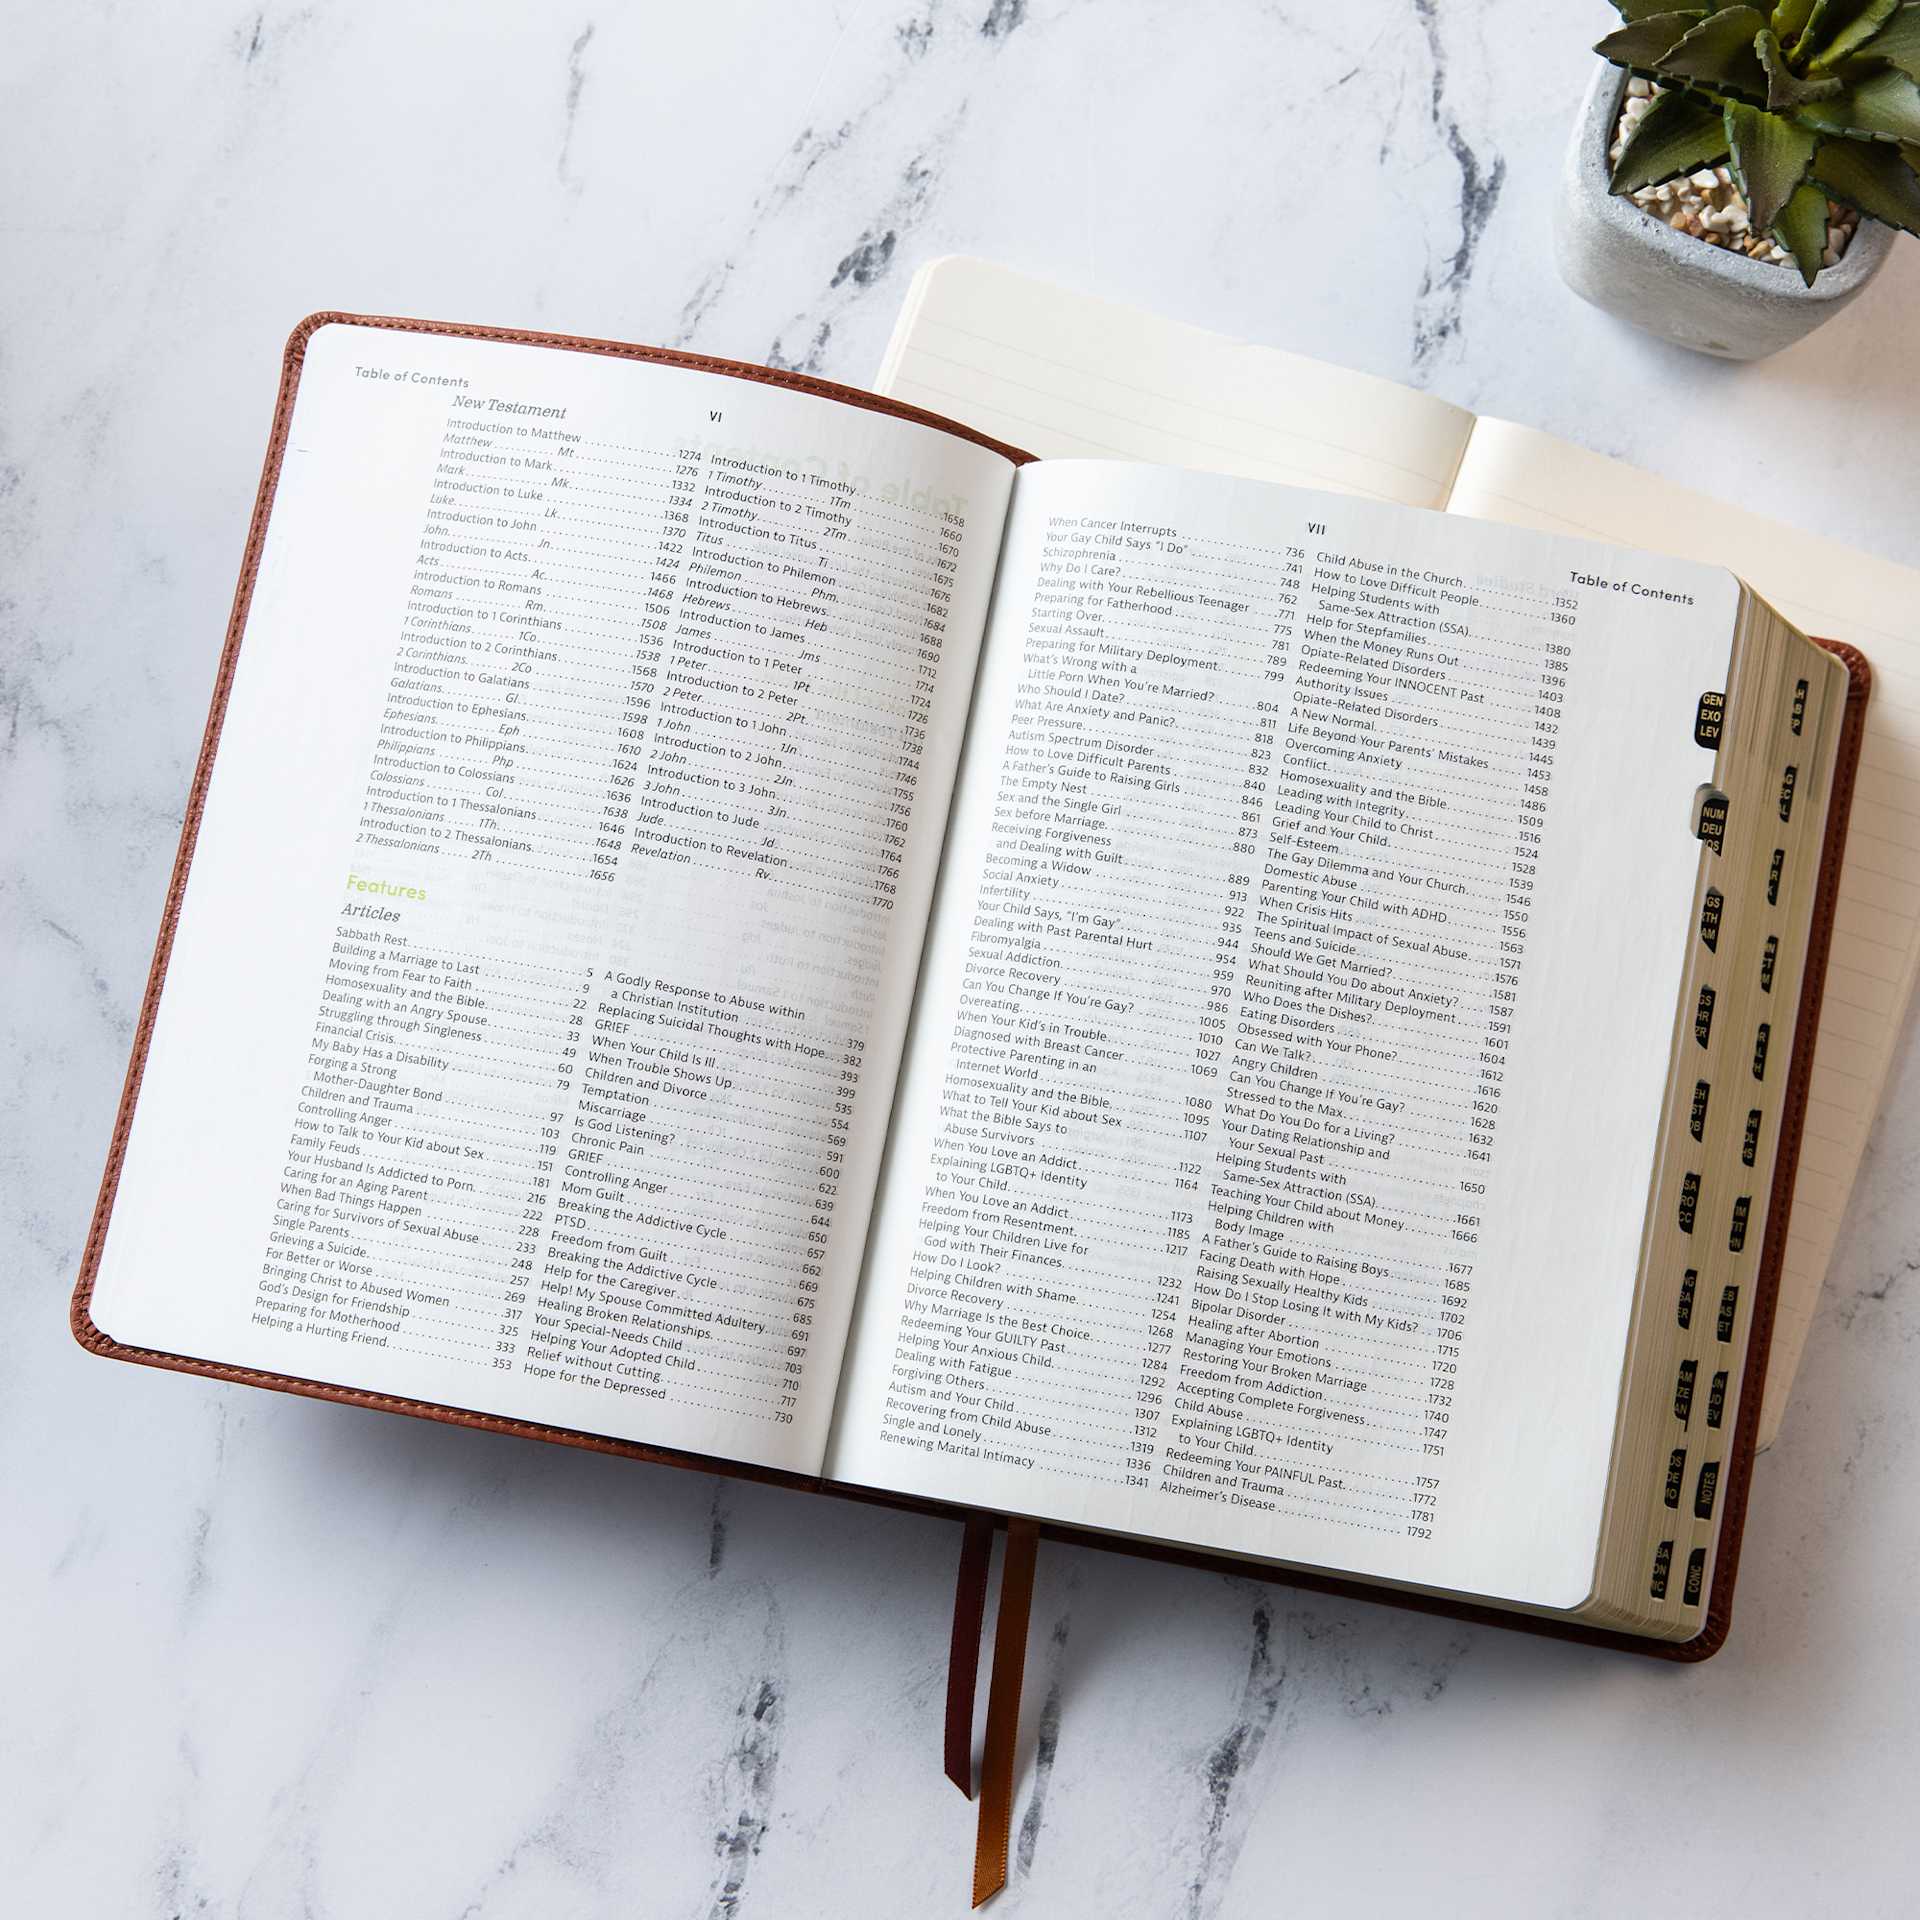 Table of Contents
VI
New Testament
Introduction to Matthew 1274
Matthew Mt 1276
Introduction to Mark 1332
Mark Mk 1334
Introduction to Luke 1368
Luke Lk 1370
Introduction to John 1422
John Jn 1424
Introduction to Acts 1466
Acts Ac 1468
Introduction to Romans 1506
Romans Rm 1508
Introduction to 1 Corinthians 1536
1 Corinthians 1Co 1538
Introduction to 2 Corinthians 1568
2 Corinthians 2Co 1570
Introduction to Galatians 1596
Galatians Gl 1598
Introduction to Ephesians 1608
Ephesians Eph 1610
Introduction to Philippians 1624
Philippians Php 1626
Introduction to Colossians 1636
Colossians Col 1638
Introduction to 1 Thessalonians 1646
1 Thessalonians 1Th 1648
Introduction to 2 Thessalonians 1654
2 Thessalonians 2Th 1656
Introduction to 1 Timothy 1658
1 Timothy 1Tm 1660
Introduction to 2 Timothy 1670
2 Timothy 2Tm 1672
Introduction to Titus 1675
Titus Ti 1676
Introduction to Philemon 1682
Philemon Phm 1684
Introduction to Hebrews 1688
Hebrews Heb 1690
Introduction to James 1712
James Jms 1714
Introduction to 1 Peter 1724
1 Peter 1Pt 1726
Introduction to 2 Peter 1736
2 Peter 2Pt 1738
Introduction to 1 John 1744
1 John 1Jn 1746
Introduction to 2 John 1755
2 John 2Jn 1756
Introduction to 3 John 1760
3 John 3Jn 1762
Introduction to Jude 1764
Jude Jd 1766
Introduction to Revelation 1768
Revelation Rv 1770
Features
Articles
Sabbath Rest 5
Building a Marriage to Last 9
Moving from Fear to Faith 22
Homosexuality and the Bible 28
Dealing with an Angry Spouse 33
Struggling through Singleness 49
Financial Crisis 60
My Baby Has a Disability 79
Forging a Strong
Mother-Daughter Bond 97
Children and Trauma 103
Controlling Anger 119
How to Talk to Your Kid about Sex 151
Family Feuds 181
Your Husband Is Addicted to Porn 216
Caring for an Aging Parent 222
When Bad Things Happen 228
Caring for Survivors of Sexual Abuse 233
Single Parents 248
Grieving a Suicide 257
For Better or Worse 269
Bringing Christ to Abused Women 317
God's Design for Friendship 325
Preparing for Motherhood 333
Helping a Hurting Friend 353
A Godly Response to Abuse within
a Christian Institution 379
Replacing Suicidal Thoughts with Hope 382
GRIEF 393
When Your Child Is Ill 399
When Trouble Shows Up 535
Children and Divorce 554
Temptation 569
Miscarriage 591
Is God Listening? 600
Chronic Pain 622
GRIEF 639
Controlling Anger 644
Mom Guilt 650
Breaking the Addictive Cycle 657
PTSD 662
Freedom from Guilt 669
Breaking the Addictive Cycle 675
Help for the Caregiver 685
Help! My Spouse Committed Adultery 691
Healing Broken Relationships 697
Your Special-Needs Child 703
Helping Your Adopted Child 710
Relief without Cutting 717
Hope for the Depressed 730
VII
Table of Contents
When Cancer Interrupts 736
Your Gay Child Says "I Do" 741
Schizophrenia 748
Why Do I Care? 762
Dealing with Your Rebellious Teenager 771
Preparing for Fatherhood 775
Starting Over 781
Sexual Assault 789
Preparing for Military Deployment 799
What's Wrong with a
Little Porn When You're Married? 804
Who Should I Date? 811
What Are Anxiety and Panic? 818
Peer Pressure 823
Autism Spectrum Disorder 832
How to Love Difficult Parents 840
A Father's Guide to Raising Girls 846
The Empty Nest 861
Sex and the Single Girl 873
Sex before Marriage 880
Receiving Forgiveness
and Dealing with Guilt 889
Becoming a Widow 913
Social Anxiety 922
Infertility 935
Your Child Says, "I'm Gay" 944
Dealing with Past Parental Hurt 954
Fibromyalgia 959
Sexual Addiction 970
Divorce Recovery 986
Can You Change If You're Gay? 1005
Overeating 1010
When Your Kid's in Trouble 1027
Diagnosed with Breast Cancer 1069
Protective Parenting in an
Internet World 1080
Homosexuality and the Bible 1095
What to Tell Your Kid about Sex 1107
What the Bible Says to
Abuse Survivors 1122
When You Love an Addict 1164
Explaining LGBTQ+ Identity
to Your Child 1173
When You Love an Addict 1185
Freedom from Resentment 1217
Helping Your Children Live for
God with Their Finances 1232
How Do I Look? 1241
Helping Children with Shame 1254
Divorce Recovery 1268
Why Marriage Is the Best Choice 1277
Redeeming Your GUILTY Past 1284
Helping Your Anxious Child 1292
Dealing with Fatigue 1296
Forgiving Others 1307
Autism and Your Child 1312
Recovering from Child Abuse 1319
Single and Lonely 1336
Renewing Marital Intimacy 1341
Child Abuse in the Church 1352
How to Love Difficult People 1360
Helping Students with
Same-Sex Attraction (SSA) 1380
Help for Stepfamilies 1385
When the Money Runs Out 1396
Opiate-Related Disorders 1403
Redeeming Your INNOCENT Past 1408
Authority Issues 1432
Opiate-Related Disorders 1439
A New Normal 1445
Life Beyond Your Parents' Mistakes 1453
Overcoming Anxiety 1458
Conflict 1486
Homosexuality and the Bible 1509
Leading with Integrity 1516
Leading Your Child to Christ 1524
Grief and Your Child 1528
Self-Esteem 1539
The Gay Dilemma and Your Church 1546
Domestic Abuse 1550
Parenting Your Child with ADHD 1556
When Crisis Hits 1563
The Spiritual Impact of Sexual Abuse 1571
Teens and Suicide 1576
Should We Get Married? 1581
What Should You Do about Anxiety? 1587
Reuniting after Military Deployment 1591
Who Does the Dishes? 1601
Eating Disorders 1604
Obsessed with Your Phone? 1612
Can We Talk? 1616
Angry Children 1620
Can You Change If You're Gay? 1628
Stressed to the Max 1632
What Do You Do for a Living? 1641
Your Dating Relationship and
Your Sexual Past 1650
Helping Students with
Same-Sex Attraction (SSA) 1661
Teaching Your Child about Money 1666
Helping Children with
Body Image 1677
A Father's Guide to Raising Boys 1685
Facing Death with Hope 1692
Raising Sexually Healthy Kids 1702
How Do I Stop Losing It with My Kids? 1706
Bipolar Disorder 1715
Healing after Abortion 1720
Managing Your Emotions 1728
Restoring Your Broken Marriage 1732
Freedom from Addiction 1740
Accepting Complete Forgiveness 1747
Child Abuse 1751
Explaining LGBTQ+ Identity
to Your Child 1757
Redeeming Your PAINFUL Past 1772
Children and Trauma 1781
Alzheimer's Disease 1792
GEN
EXO
LEV
NUM
DEU
NOTES
CONC